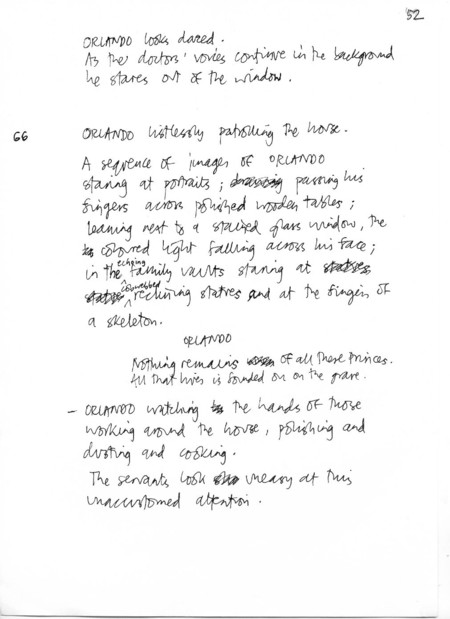 52
ORLANDO looks dazed.
As the doctors' voices continue in the background
he stares out of the window.
66
ORLANDO listlessly patrolling the house.
A sequence of images of ORLANDO
staring at portraits; passing his
fingers across polished wooden tables;
leaning next to a stained glass window, the
coloured light falling across his face;
in the echoing family vaults staring at statues
cobwebbed reclining statues and at the fingers of
a skeleton.
ORLANDO
Nothing remains of all these Princes.
All that lives is founded on the grave.
- ORLANDO watching the hands of those
working around the house, polishing and
dusting and cooking.
The servants look uneasy at this
unaccustomed attention.